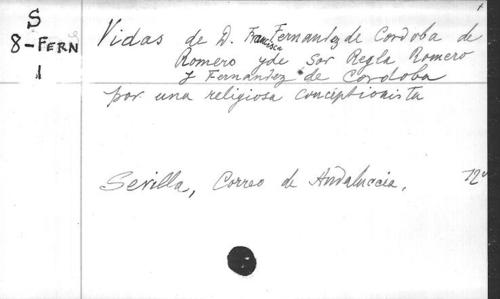 S
8-FERN
1
Vidas de D. Francisca Fernandez de Cordoba de
Romero y de Sor Regla Romero
y Fernandez de Cordoba
por una religiosa conceptionista
Sevilla, Correo de Andaluccia, 12º